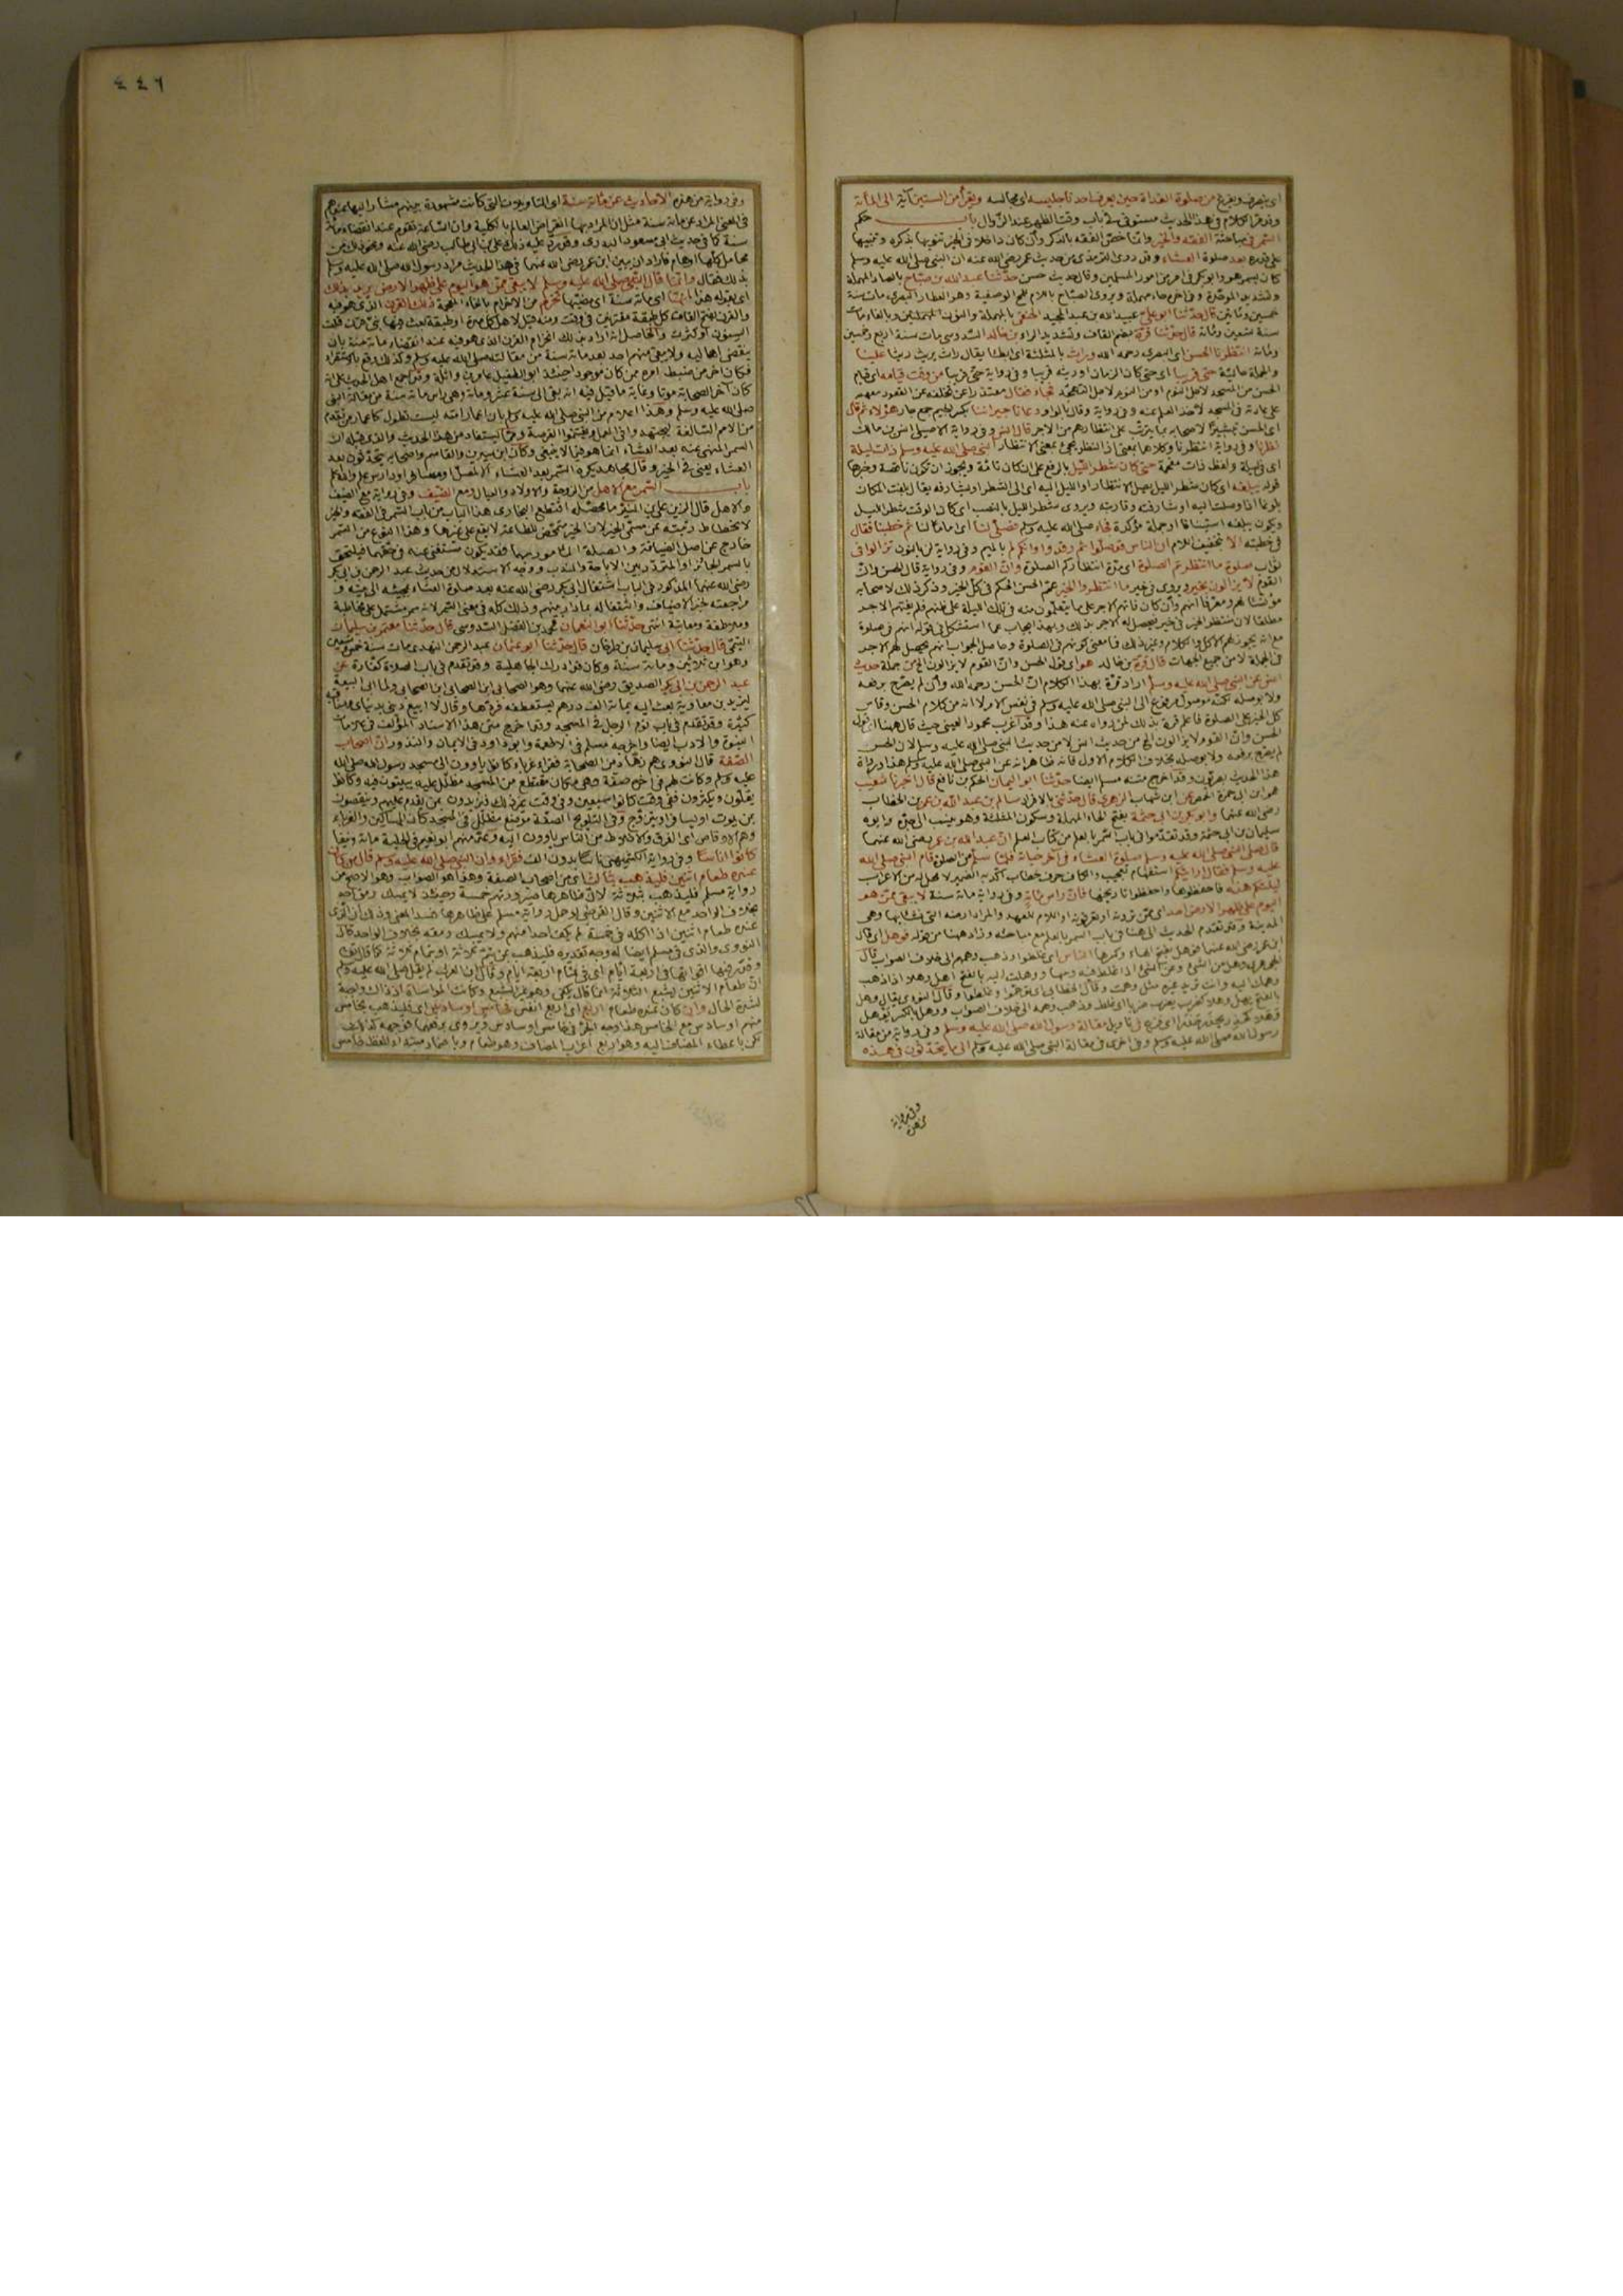 اى ينصرف ويخرج من صلوة الغداة حين يعرف احدنا جليسه اى مجالسه ويقرأ من الستين آية الى المائة
وقد مر الكلام فى هذا الحديث مستوفى فى باب وقت الظهر عند الزوال باب حكم
السمر فى مباحثة الفقه والخير وانما خص الفقه بالذكر وان كان داخلا فى الخير تنويها بذكره وتنبيها
على قدره بعد صلوة العشاء وقد روى الترمذى من حديث عمر رضى الله عنه ان النبى صلى الله عليه وسلم
كان يسمر هو وابو بكر فى امر من امور المسلمين وقال حديث حسن حدثنا عبد الله بن صباح بالصاد المهملة
وتشديد الموحدة وفى اخره حاء مهملة ويروى الصباح باللام للمح الوصفية وهو العطار البصرى مات سنة
خمسين ومائتين قال حدثنا ابو على عبيد الله بن عبد المجيد الحنفى بالمهملة والنون المفتوحتين وبالفاء مات
سنة تسعين ومائة قال حدثنا قرة بضم القاف وتشديد الراء بن خالد السدوسى مات سنة اربع وخمسين
ومائة انتظرنا الحسن اى البصرى رحمه الله وراث بالمثلثة اى ابطأ يقال راث يريث ريثا علينا
والجملة حالية حتى قربنا اى حتى كان الزمان او ريثه قريبا وفى رواية حتى قريبا من وقت قيامه اى قيام
الحسن من المسجد لاجل النوم او من النوم لاجل التهجد فجاء فقال معتذرا عن تخلفه عن القعود معهم
على عادته فى المسجد لاخذ العلم عنه وفى رواية وقال بالواو دعانا جيراننا بكسر الجيم جمع جار هؤلاء ثم قال
اى الحسن تبشيرا لاصحابه بما يترتب على انتظارهم من الاجر قال انس وفى رواية الاصيلى انس بن مالك
نظرنا وفى رواية انتظرنا وكلاهما بمعنى اذ النظر يجئ بمعنى الانتظار النبى صلى الله عليه وسلم ذات ليلة
اى فى ليلة ولفظ ذات مقحمة حتى كان شطر الليل بالرفع على ان كان تامة ويجوز ان تكون ناقصة وخبرها
قوله يبلغه اى كان شطر الليل يصل الانتظار او الليل اليه اى الى الشطر او يشارفه يقال بلغت المكان
بلوغا اذا وصلت اليه او شارفته وقاربته ويروى شطر الليل بالنصب اى كان الوقت شطر الليل
ويكون يبلغه استينافا او جملة مؤكدة فجاء صلى الله عليه وسلم فصلى لنا اى اماما لنا ثم خطبنا فقال
فى خطبته الا بتخفيف اللام ان الناس قد صلوا ثم رقدوا وانكم لم بالميم وفى رواية لن بالنون تزالوا فى
ثواب صلوة ما انتظرتم الصلوة اى مدة انتظاركم الصلوة وان القوم وفى رواية قال الحسن وان
القوم لا يزالون بخير ويروى فى خير ما انتظروا الخير عمم الحسن الحكم فى كل الخير وذكر ذلك لاصحابه
مؤنسا لهم ومعرفا انهم وان كان فاتهم الاجر على ما يتعلمون منه فى تلك الليلة على ظنهم فلم يفتهم الاجر
مطلقا لان منتظر الخير فى خير يحصل له الاجر بذلك وبهذا يجاب عما استشكل فى قوله انهم فى صلوة
مع انه يجوز لهم الاكل والكلام وغير ذلك فما معنى كونهم فى الصلوة وحاصل الجواب انهم يحصل لهم الاجر
فى الجملة لا من جميع الجهات قال قرة بن خالد هو اى قول الحسن وان القوم لا يزالون الخ من جملة حديث
انس عن النبى صلى الله عليه وسلم اراد قرة بهذا الكلام ان الحسن رحمه الله وان لم يصرح برفعه
ولا بوصله لكنه موصول مرفوع الى النبى صلى الله عليه وسلم فى نفس الامر لا انه من كلام الحسن وقاس
كل الخير على الصلوة فاعلم قرة بذلك لمن رواه عنه هذا وقد اغرب محمود العينى حيث قال ههنا ان قول
الحسن وان القوم لا يزالون الخ من حديث انس لا من حديث النبى صلى الله عليه وسلم لان الحسن
لم يصرح برفعه ولا بوصله بخلاف الكلام الاول فانه ظاهر انه عن النبى صلى الله عليه وسلم هذا ورواة
هذا الحديث بصريون وقد اخرج متنه مسلم ايضا حدثنا ابو اليمان الحكم بن نافع قال اخبرنا شعيب
هو ابن ابى حمزة الحمصى عن ابن شهاب الزهرى قال حدثنى بالافراد سالم بن عبد الله بن عمر بن الخطاب
رضى الله عنهما وابو بكر بن ابى حثمة بفتح الحاء المهملة وسكون المثلثة وهو ينسب الى جده وابوه
سليمان بن ابى حثمة وقد تقدموا فى باب السمر بالعلم من كتاب العلم ان عبد الله بن عمر رضى الله عنهما
قال صلى النبى صلى الله عليه وسلم صلوة العشاء فى آخر حياته فلما سلم من الصلوة قام النبى صلى الله
عليه وسلم فقال ارايتكم استفهام تعجيب والكاف حرف خطاب اكد به الضمير لا محل له من الاعراب
ليلتكم هذه فاحفظوها واحفظوا تاريخها فان راس مائة وفى رواية مائة سنة لا يبقى ممن هو
اليوم على ظهر الارض احد اى ممن ترونه او تعرفونه او اللام للعهد والمراد ارضه التى نشأ بها وهى
المدينة وقد تقدم الحديث الى هنا فى باب السمر بالعلم مع مباحثه وزاد ههنا من قوله فوهل اى قال
ابن عمر رضى الله عنهما فوهل بفتح الهاء وكسرها الناس اى غلطوا وذهب وهمهم الى خلاف الصواب قال
الجوهرى وهل من الشئ وعن الشئ اذا غلط فيه وسها ووهلت اليه بالفتح اهل وهلا اذا ذهب
وهمك اليه وانت تريد غيره مثل وهمت وقال الخطابى اى توهموا وغلطوا وقال النووى يقال وهل
بالفتح يهل وهلا كضرب يضرب ضربا اى غلط وذهب وهمه الى خلاف الصواب ووهل بالكسر يوهل
وهلا كحذر يحذر حذرا اى فزع فى تاويل مقالة رسول الله صلى الله عليه وسلم وفى رواية من مقالة
رسول الله صلى الله عليه وسلم وفى اخرى فى مقالة النبى صلى الله عليه وسلم الى ما يتحدثون فى هذه
وفى رواية
من هذه
٤٤٦
وفى رواية من هذه الاحاديث عن مائة سنة اى التاويلات التى كانت مشهودة بينهم مشارا اليها عندهم
فى المعنى المراد عن مائة سنة مثل ان المراد بها انقراض العالم بالكلية وان الساعة تقوم عند انقضاء مائة
سنة كما فى حديث ابى مسعود البدرى وقد رد عليه ذلك على بن ابى طالب رضى الله عنه ونحو ذلك من
محامل كلها اوهام فاراد ان يبين ابن عمر رضى الله عنهما فى هذا الحديث مراد رسول الله صلى الله عليه وسلم
بذلك فقال وانما قال النبى صلى الله عليه وسلم لا يبقى ممن هو اليوم على ظهر الارض يريد بذلك
اى بقوله هذا انها اى مائة سنة اى مضيها تخرم من الاخرام بالخاء المعجمة ذلك القرن الذى هو فيه
والقرن بفتح القاف كل طبقة مقترنين فى وقت ومنه قيل لاهل كل مدة او طبقة بعث فيها نبى قرن قلت
السنون او كثرت والحاصل انه اراد بذلك انخرام القرن الذى هو فيه عند انقضاء مائة سنة بان
ينقضى اهاليه ولا يبقى منهم احد بعد مائة سنة من مقالته صلى الله عليه وسلم وكذلك وقع بالاستقراء
فكان اخر من ضبط امره ممن كان موجودا حينئذ ابو الطفيل عامر بن واثلة وقد اجمع اهل الحديث على انه
كان آخر الصحابة موتا وغاية ما قيل فيه انه بقى الى سنة عشر ومائة وهى راس مائة سنة من مقالة النبى
صلى الله عليه وسلم وهذا اعلام من النبى صلى الله عليه وسلم بان اعمار امته ليست تطول كاعمار من تقدم
من الامم السالفة ليجتهدوا فى العمل ويغتنموا الفرصة ومما يستفاد من هذا الحديث والذى قبله ان
السمر المنهى عنه بعد العشاء انما هو فيما لا ينبغى وكان ابن سيرين والقاسم واصحابه يتحدثون بعد
العشاء يعنى فى الخير وقال مجاهد يكره السمر بعد العشاء الا لمصل ومسافر او دارس علم والله اعلم
باب السمر مع الاهل من الزوجة والاولاد والعيال ومع الضيف وفى رواية مع الضيف
والاهل قال الزين على بن المنير ما محصله اقتطع البخارى هذا الباب من باب السمر فى الفقه والخير
لانحطاط رتبته عن مسمى الخير لان الخير متمحض للطاعة لا يقع على غيرها وهذا النوع من السمر
خارج عن اصل الضيافة والصلة المامور بهما فقد يكون مستغنى عنه فى حقهما فيلتحق
بالسمر الجائز او المتردد بين الاباحة والندب ووجه الاستدلال من حديث عبد الرحمن بن ابى بكر
رضى الله عنهما المذكور فى الباب اشتغال ابى بكر رضى الله عنه بعد صلوة العشاء بمجيئه الى بيته و
مراجعته خبر الاضياف واشتغاله بما دار بينهم وذلك كله فى معنى السمر لانه سمر مشتمل على مخاطبة
وملاطفة ومعاتبة انتهى حدثنا ابو النعمان محمد بن الفضل السدوسى قال حدثنا معتمر بن سليمان
التيمى قال حدثنا ابى سليمان بن طرخان قال حدثنا ابو عثمان عبد الرحمن النهدى مات سنة خمس وتسعين
وهو ابن ثلاثين ومائة سنة وكان قد ادرك الجاهلية وقد تقدم فى باب الصلاة كفارة عن
عبد الرحمن بن ابى بكر الصديق رضى الله عنهما وهو الصحابى ابن الصحابى ابن الصحابى ولما ابى البيعة
ليزيد بن معاوية بعث اليه بمائة الف درهم ليستعطفه فردها وقال لا ابيع دينى بدنياى
كثيرة وقد تقدم فى باب نوم الرجل فى المسجد وقد اخرج متن هذا الاسناد المؤلف فى علامات
النبوة والادب ايضا واخرجه مسلم فى الاطعمة وابو داود فى الايمان والنذور ان اصحاب
الصفة قال النووى هم زهاد من الصحابة فقراء غرباء وكانوا ياوون الى مسجد رسول الله صلى الله
عليه وسلم وكانت لهم فى اخره صفة وهى مكان مقتطع من المسجد مظلل عليه يبيتون فيه وكانوا
يقلون ويكثرون ففى وقت كانوا سبعين وفى وقت غير ذلك فيزيدون بمن يقدم عليهم وينقصون
بمن يموت او يسافر او يتزوج وفى التلويح الصفة موضع مظلل فى المسجد كان للمساكين والغرباء
وهم الاوفاض اى الفرق والاخلاط من الناس ياوون اليه وعد منهم ابو نعيم فى الحلية مائة ونيفا
كانوا اناسا وفى رواية الكشميهنى ناسا بدون الف فقراء وان النبى صلى الله عليه وسلم قال من كان
عنده طعام اثنين فليذهب بثالث اى من اصحاب الصفة وهذا هو الصواب وهو الاصح من
رواية مسلم فليذهب بثلاثة لان ظاهرها صيرورتهم خمسة وحينئذ لا يمسك رمق احد
بخلاف الواحد مع الاثنين وقال القرطبى لو حمل رواية مسلم على ظاهرها فسد المعنى وذلك ان الذى
عنده طعام اثنين اذا اكله فى خمسة لم يكف احدا منهم ولا يمسك رمقه بخلاف الواحد قال
النووى والذى فى مسلم ايضا له وجه تقديره فليذهب بمن يتم ثلاثة او بتمام ثلاثة كما قال تعالى
وقدر فيها اقواتها فى اربعة ايام اى فى تمام اربعة ايام وقال ابن العربى لم يقل صلى الله عليه وسلم
ان طعام الاثنين يشبع الثلاثة انما قال يكفى وهو غير الشبع وكانت المواساة اذ ذاك واجبة
لشدة الحال وان كان عنده طعام اربع اى اربع انفس فخامس او سادس اى فليذهب بخامس
منهم او سادس مع الخامس هذا وجه الجر فى خامس او سادس ويروى برفعهما فوجهه كذلك
لكن باعطاء المضاف اليه وهو اربع اعراب المضاف وهو طعام وباضمار مبتداء للفظ خامس